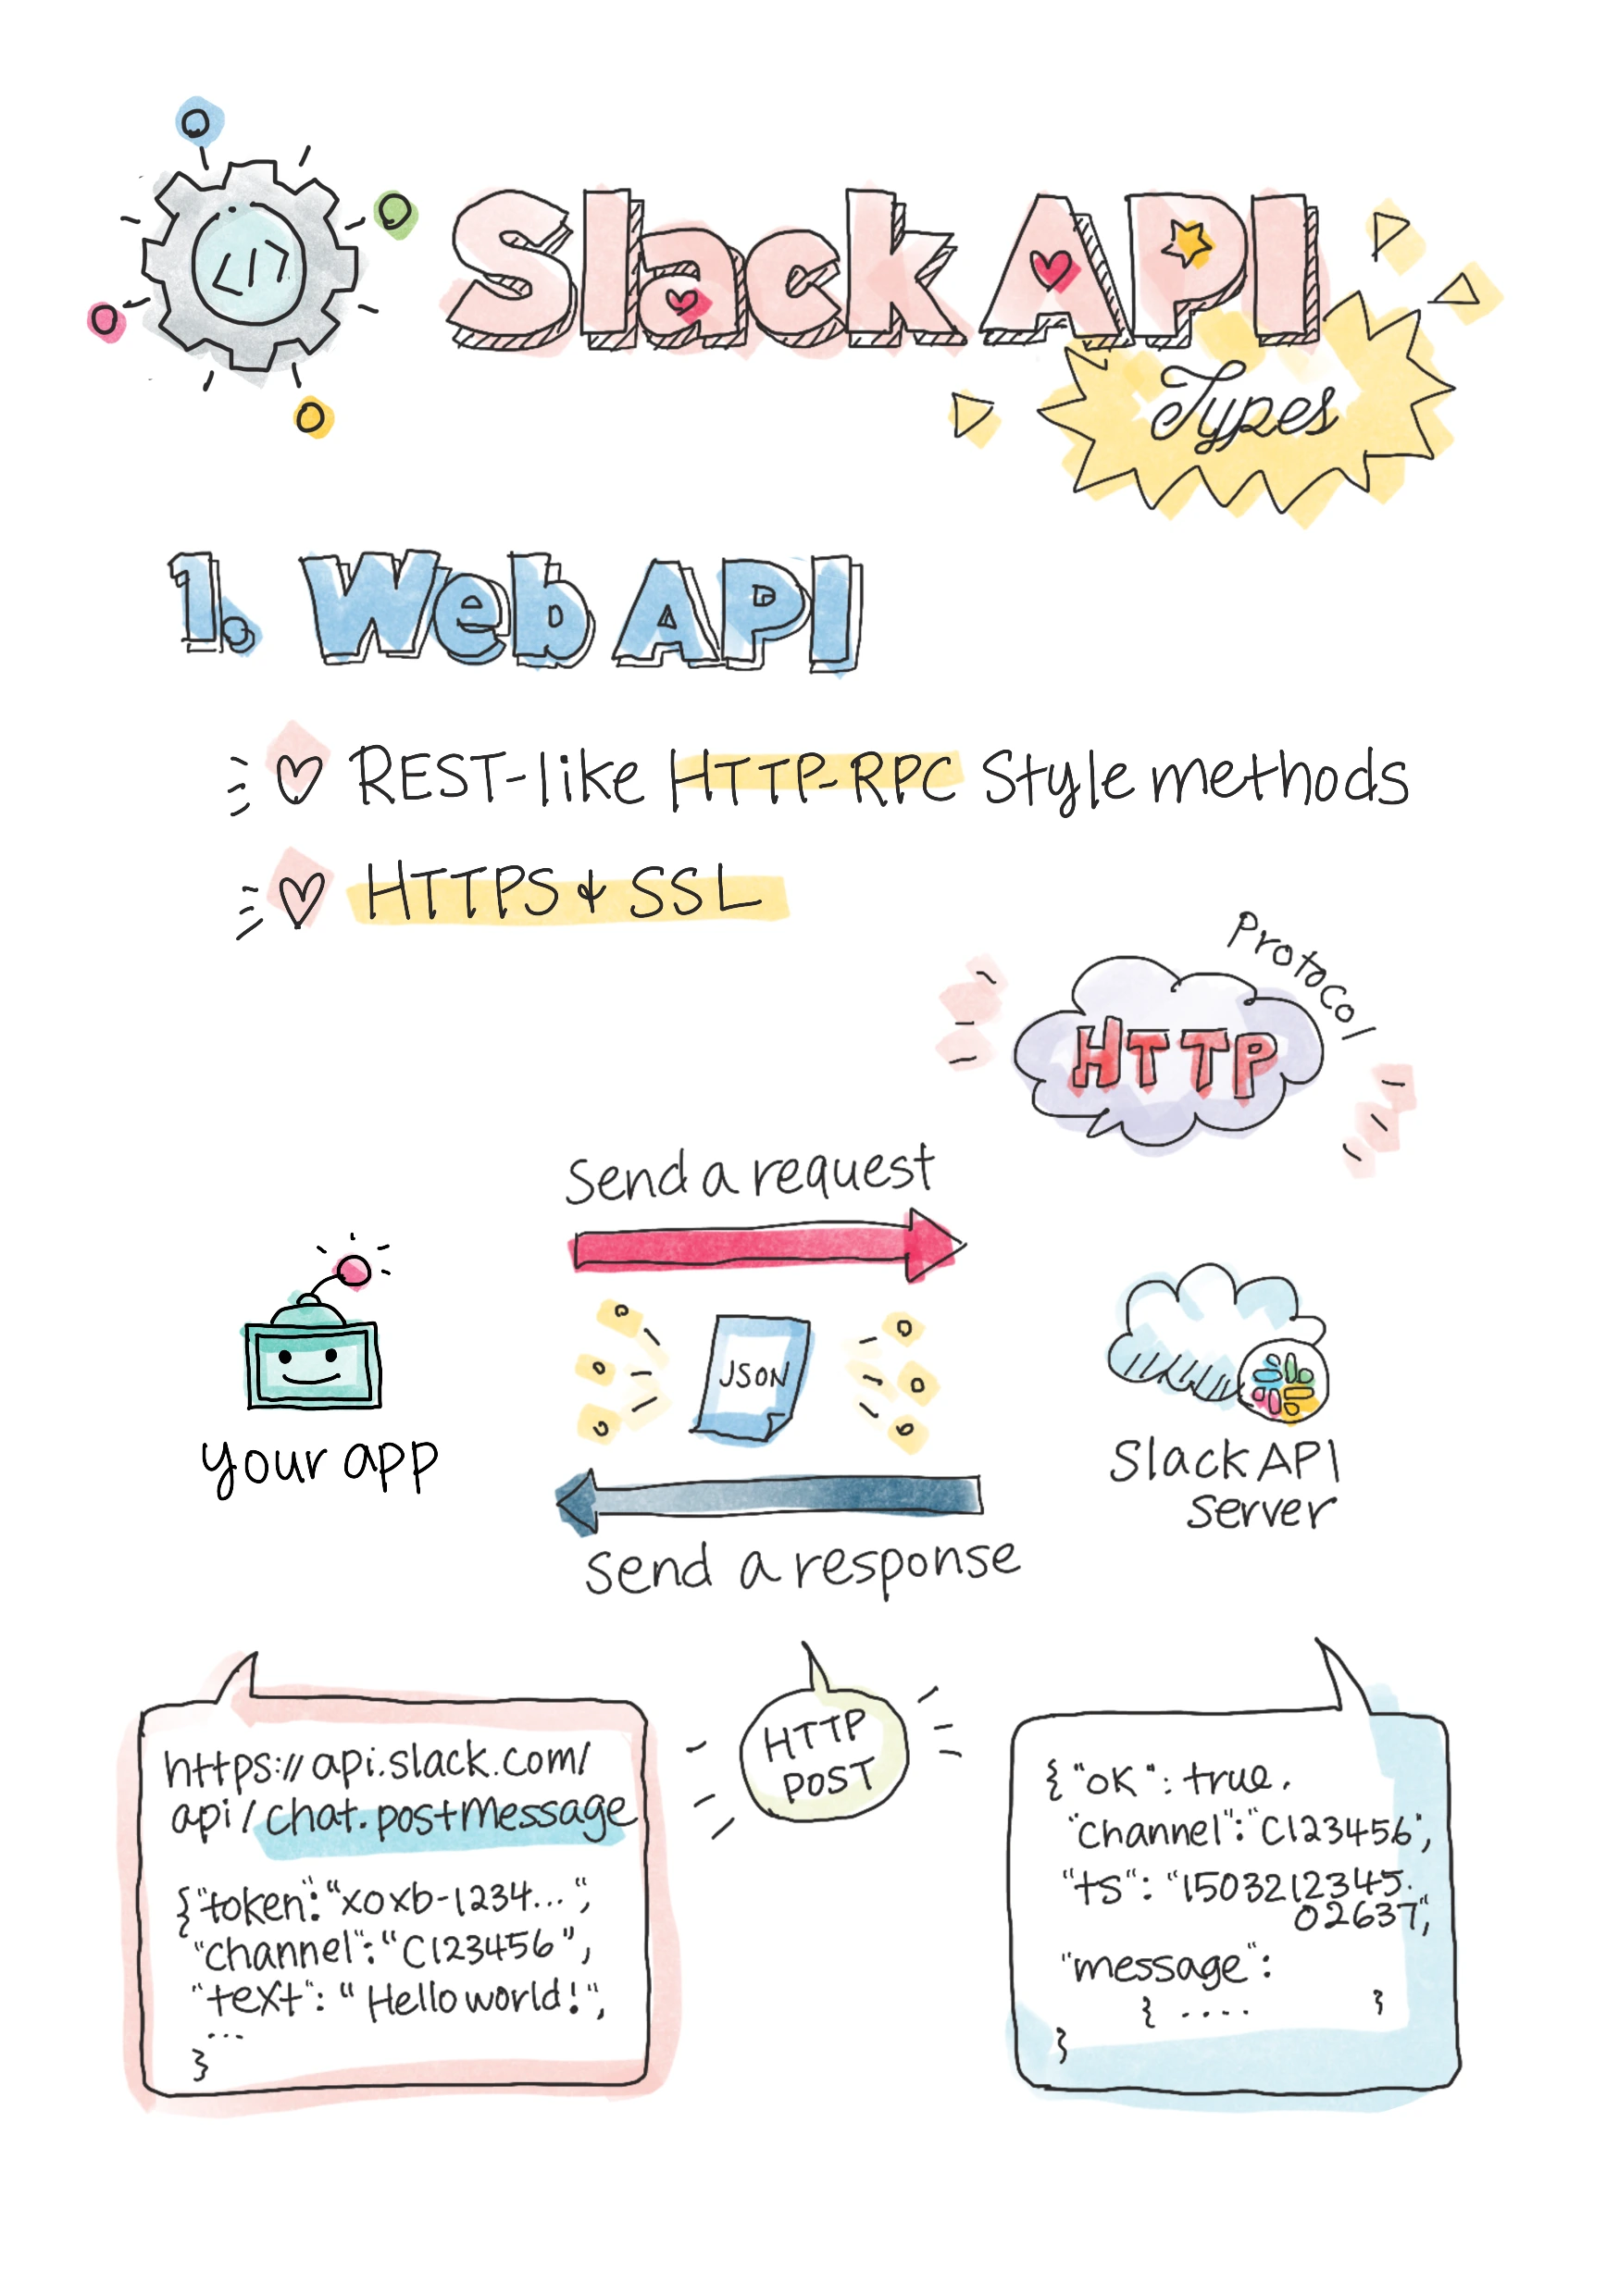 </>
Slack API
Types
1. Web API
REST-like HTTP-RPC Style methods
HTTPS & SSL
Protocol
HTTP
Send a request
JSON
your app
Slack API
server
Send a response
https://api.slack.com/
api/chat.postMessage
{"token": "xoxb-1234...",
"channel": "C123456",
"text": "Hello world!",
...
}
HTTP
POST
{"ok": true,
"channel": "C123456",
"ts": "1503212345.
02637",
"message":
{ .... }
}